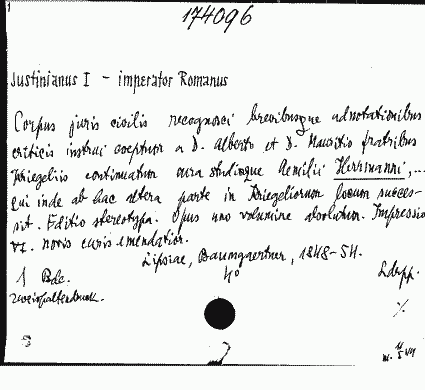 174096
Justinianus I - imperator Romanus
Corpus juris civilis recognosci brevibusque adnotationibus
criticis instrui coeptum a D. Alberto et D. Mauritio fratribus
Kriegeliis continuatum cura studioque Aemilii Herrmanni, ...
qui inde ab hac altera parte in Kriegeliorum locum succes-
sit. Editio stereotypa. Opus uno volumine absolutum. Impressio
VI. novis curis emendatior.
Lipsiae, Baumgaertner, 1848-54.
1 Bde. 4°
Zweispaltendruck.